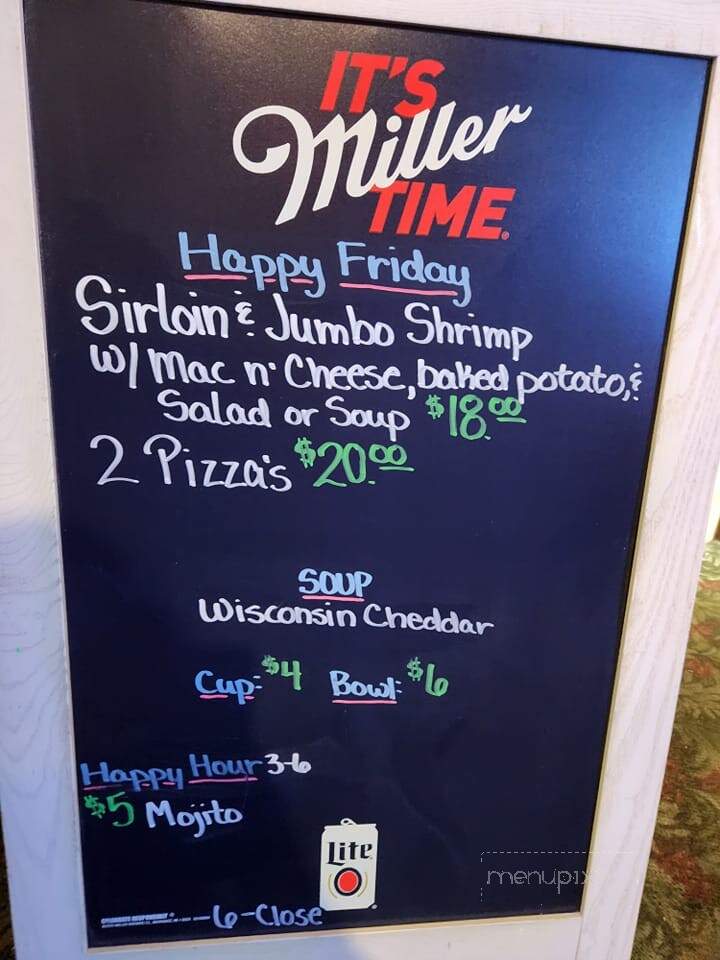 IT'S
Miller
TIME
Happy Friday
Sirloin & Jumbo Shrimp
w/ Mac n' Cheese, baked potato, &
Salad or Soup $18.00
2 Pizza's $20.00
SOUP
Wisconsin Cheddar
Cup: $4 Bowl: $6
Happy Hour 3-6
$5 Mojito
Lite
6-Close
menupix